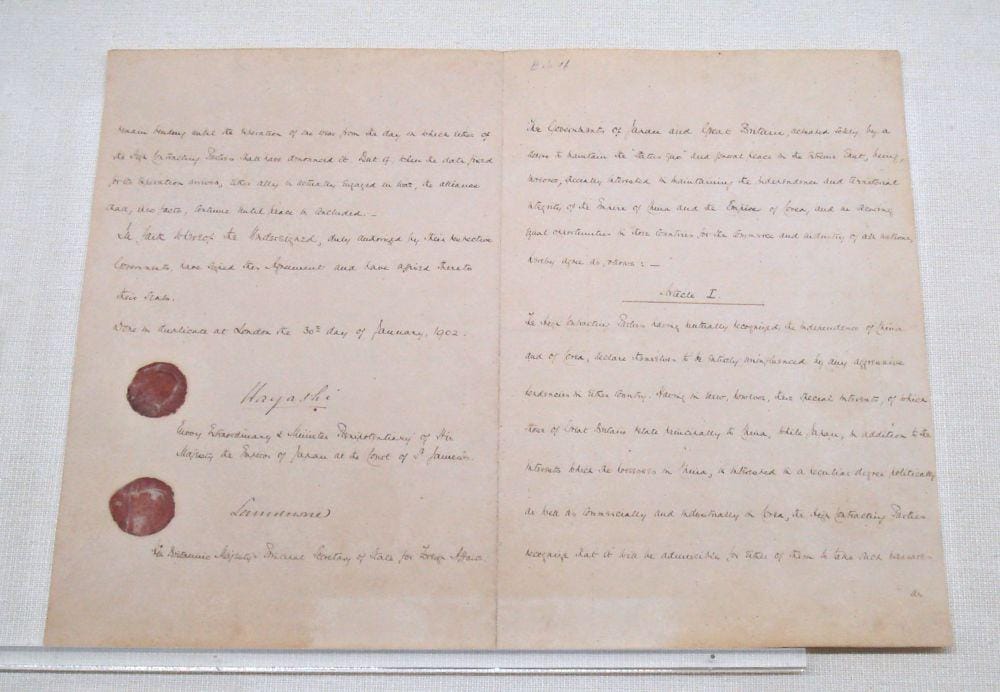 remain binding until the expiration of one year from the day on which either of
the High Contracting Parties shall have denounced it. But if, when the date fixed
for its expiration arrives, either ally is actually engaged in war, the alliance
shall, ipso facto, continue until peace is concluded. —
In faith whereof the Undersigned, duly authorized by their respective
Governments, have signed this Agreement and have affixed thereto
their Seals.
Done in duplicate at London the 30th day of January, 1902.
Hayashi
Envoy Extraordinary & Minister Plenipotentiary of His
Majesty the Emperor of Japan at the Court of St. James's.
Lansdowne
His Britannic Majesty's Principal Secretary of State for Foreign Affairs.
The Governments of Japan and Great Britain, actuated solely by a
desire to maintain the "status quo" and general peace in the Extreme East, being,
moreover, specially interested in maintaining the independence and territorial
integrity of the Empire of China and the Empire of Corea, and in securing
equal opportunities in those countries for the commerce and industry of all nations,
hereby agree as follows: —
Article I.
The High Contracting Parties having mutually recognized the independence of China
and of Corea, declare themselves to be entirely uninfluenced by any aggressive
tendencies in either country. Having in view, however, their special interests, of which
those of Great Britain relate principally to China, while Japan, in addition to the
interests which she possesses in China, is interested in a peculiar degree politically
as well as commercially and industrially in Corea, the High Contracting Parties
recognize that it will be admissible for either of them to take such measures
as